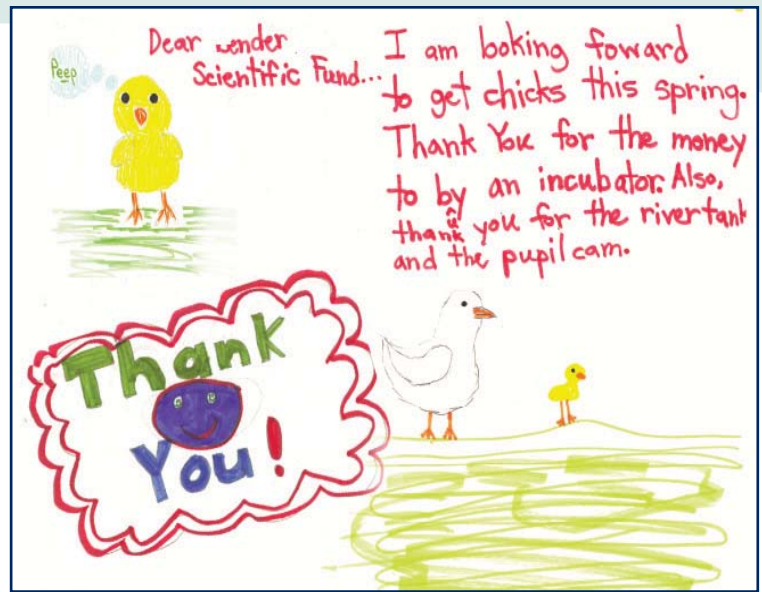 Peep
Dear wender
Scientific Fund...
I am looking foward
to get chicks this spring.
Thank You for the money
to by an incubator. Also,
u
thank you for the rivertank
and the pupil cam.
Thank
You!